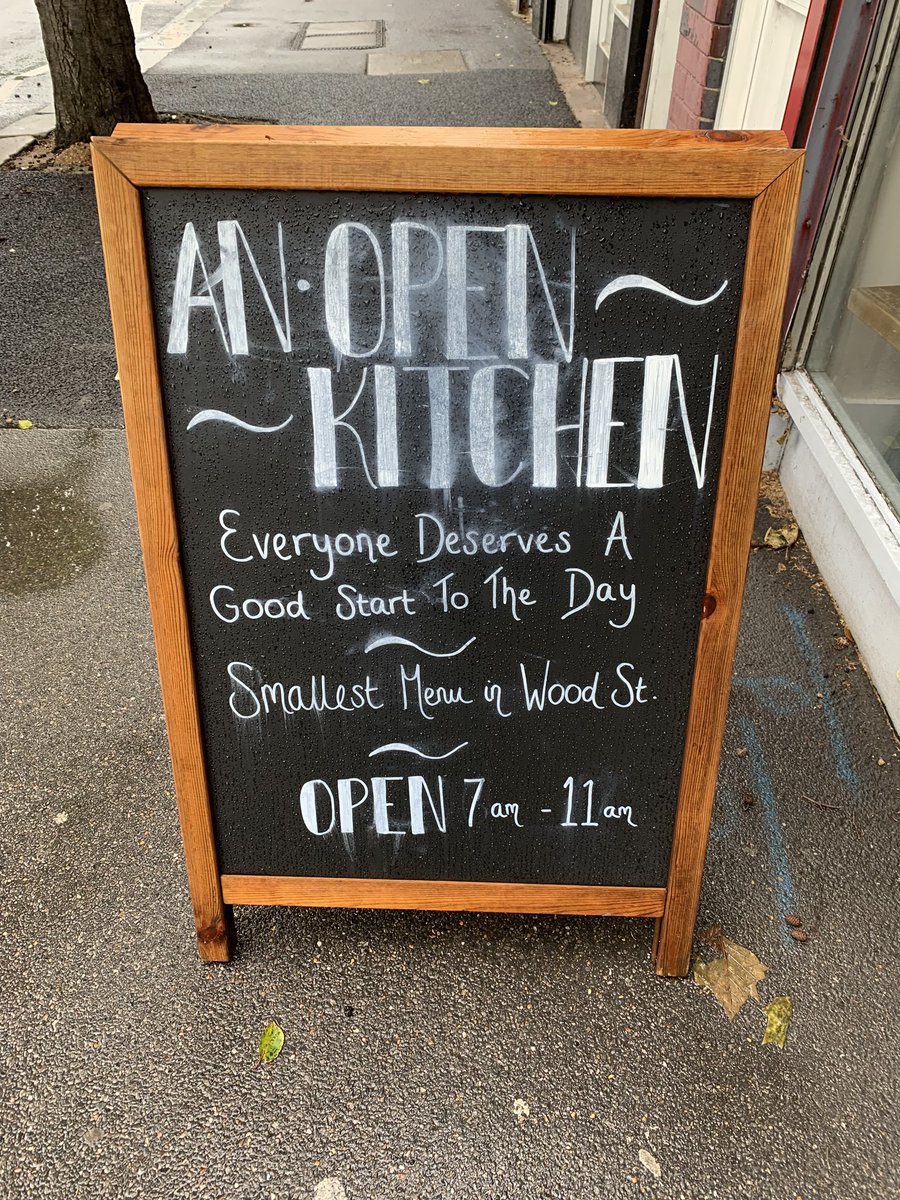 AN·OPEN ~
~ KITCHEN
Everyone Deserves A
Good Start To The Day
~
Smallest Menu in Wood St.
~
OPEN 7am - 11am